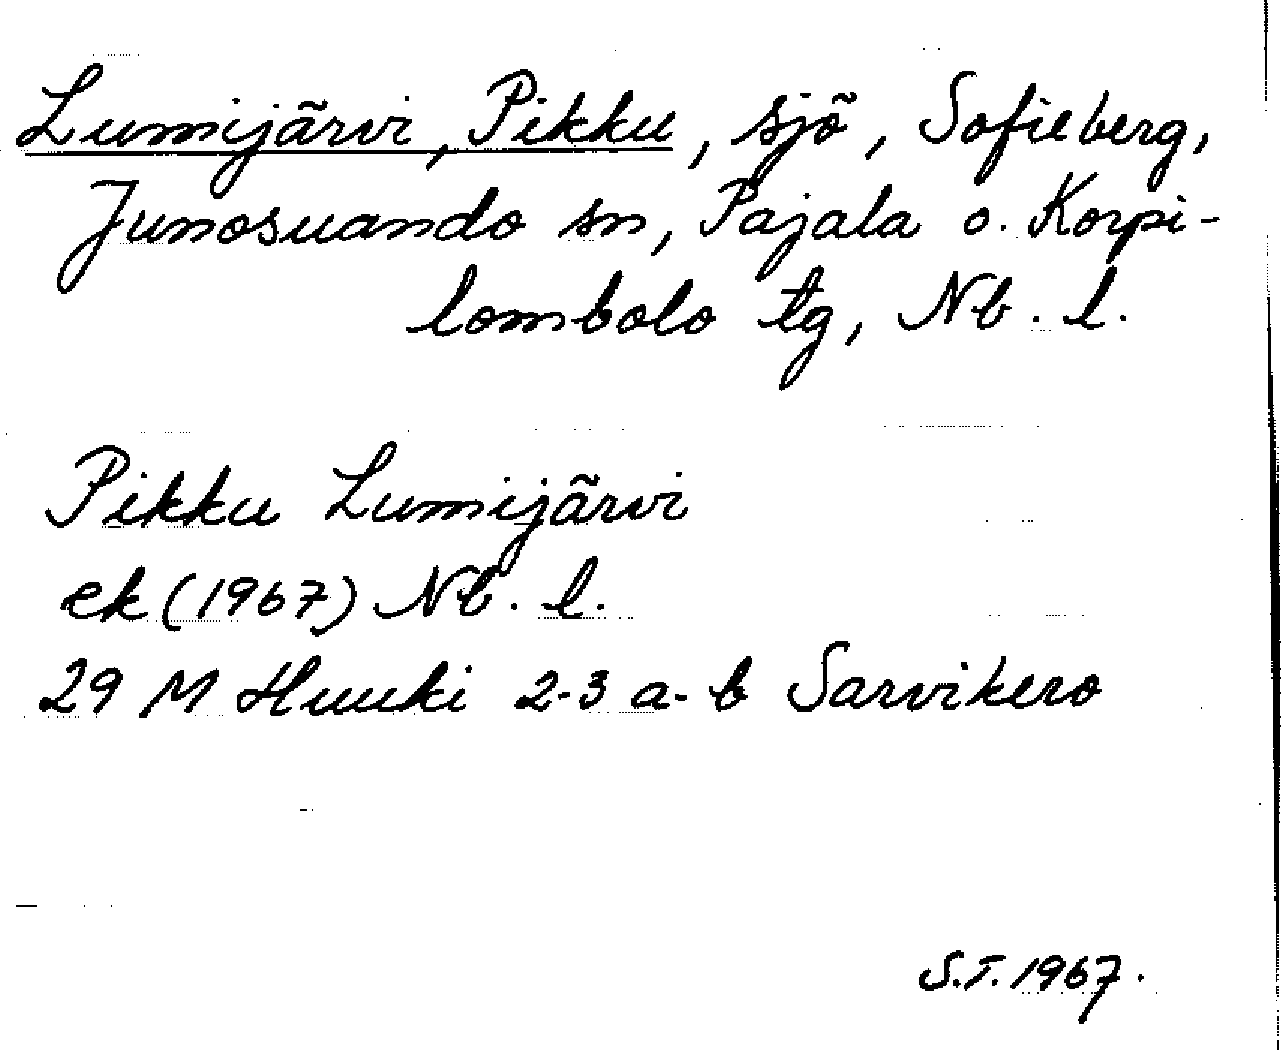 Lumijärvi, Pikku, sjö, Sofieberg,
Junosuando sn, Pajala o. Korpi-
lombolo tg, Nb. l.
Pikku Lumijärvi
ek (1967) Nb. l.
29 M Huuki 2-3 a-b Sarvikero
S.T. 1967.